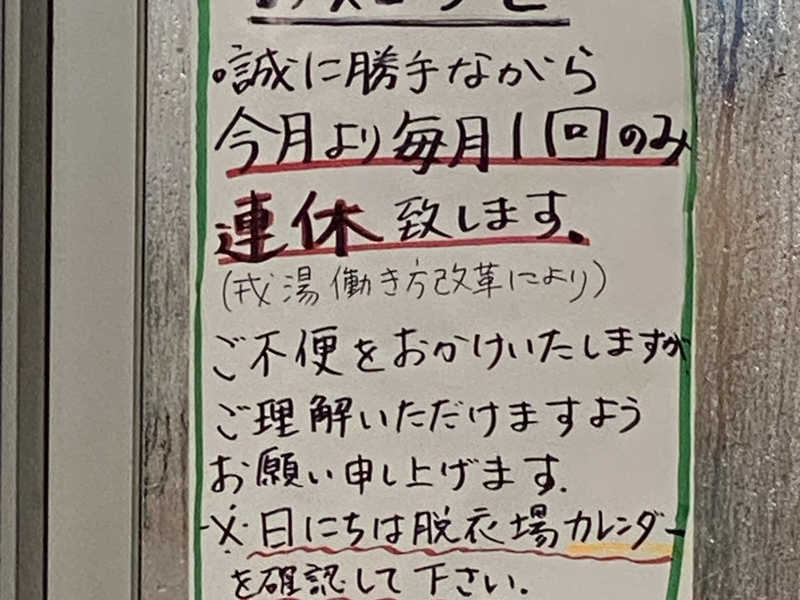 誠に勝手ながら
今月より毎月1回のみ
連休致します。
(戎湯働き方改革により)
ご不便をおかけいたしますが
ご理解いただけますよう
お願い申し上げます。
※日にちは脱衣場カレンダー
を確認して下さい。